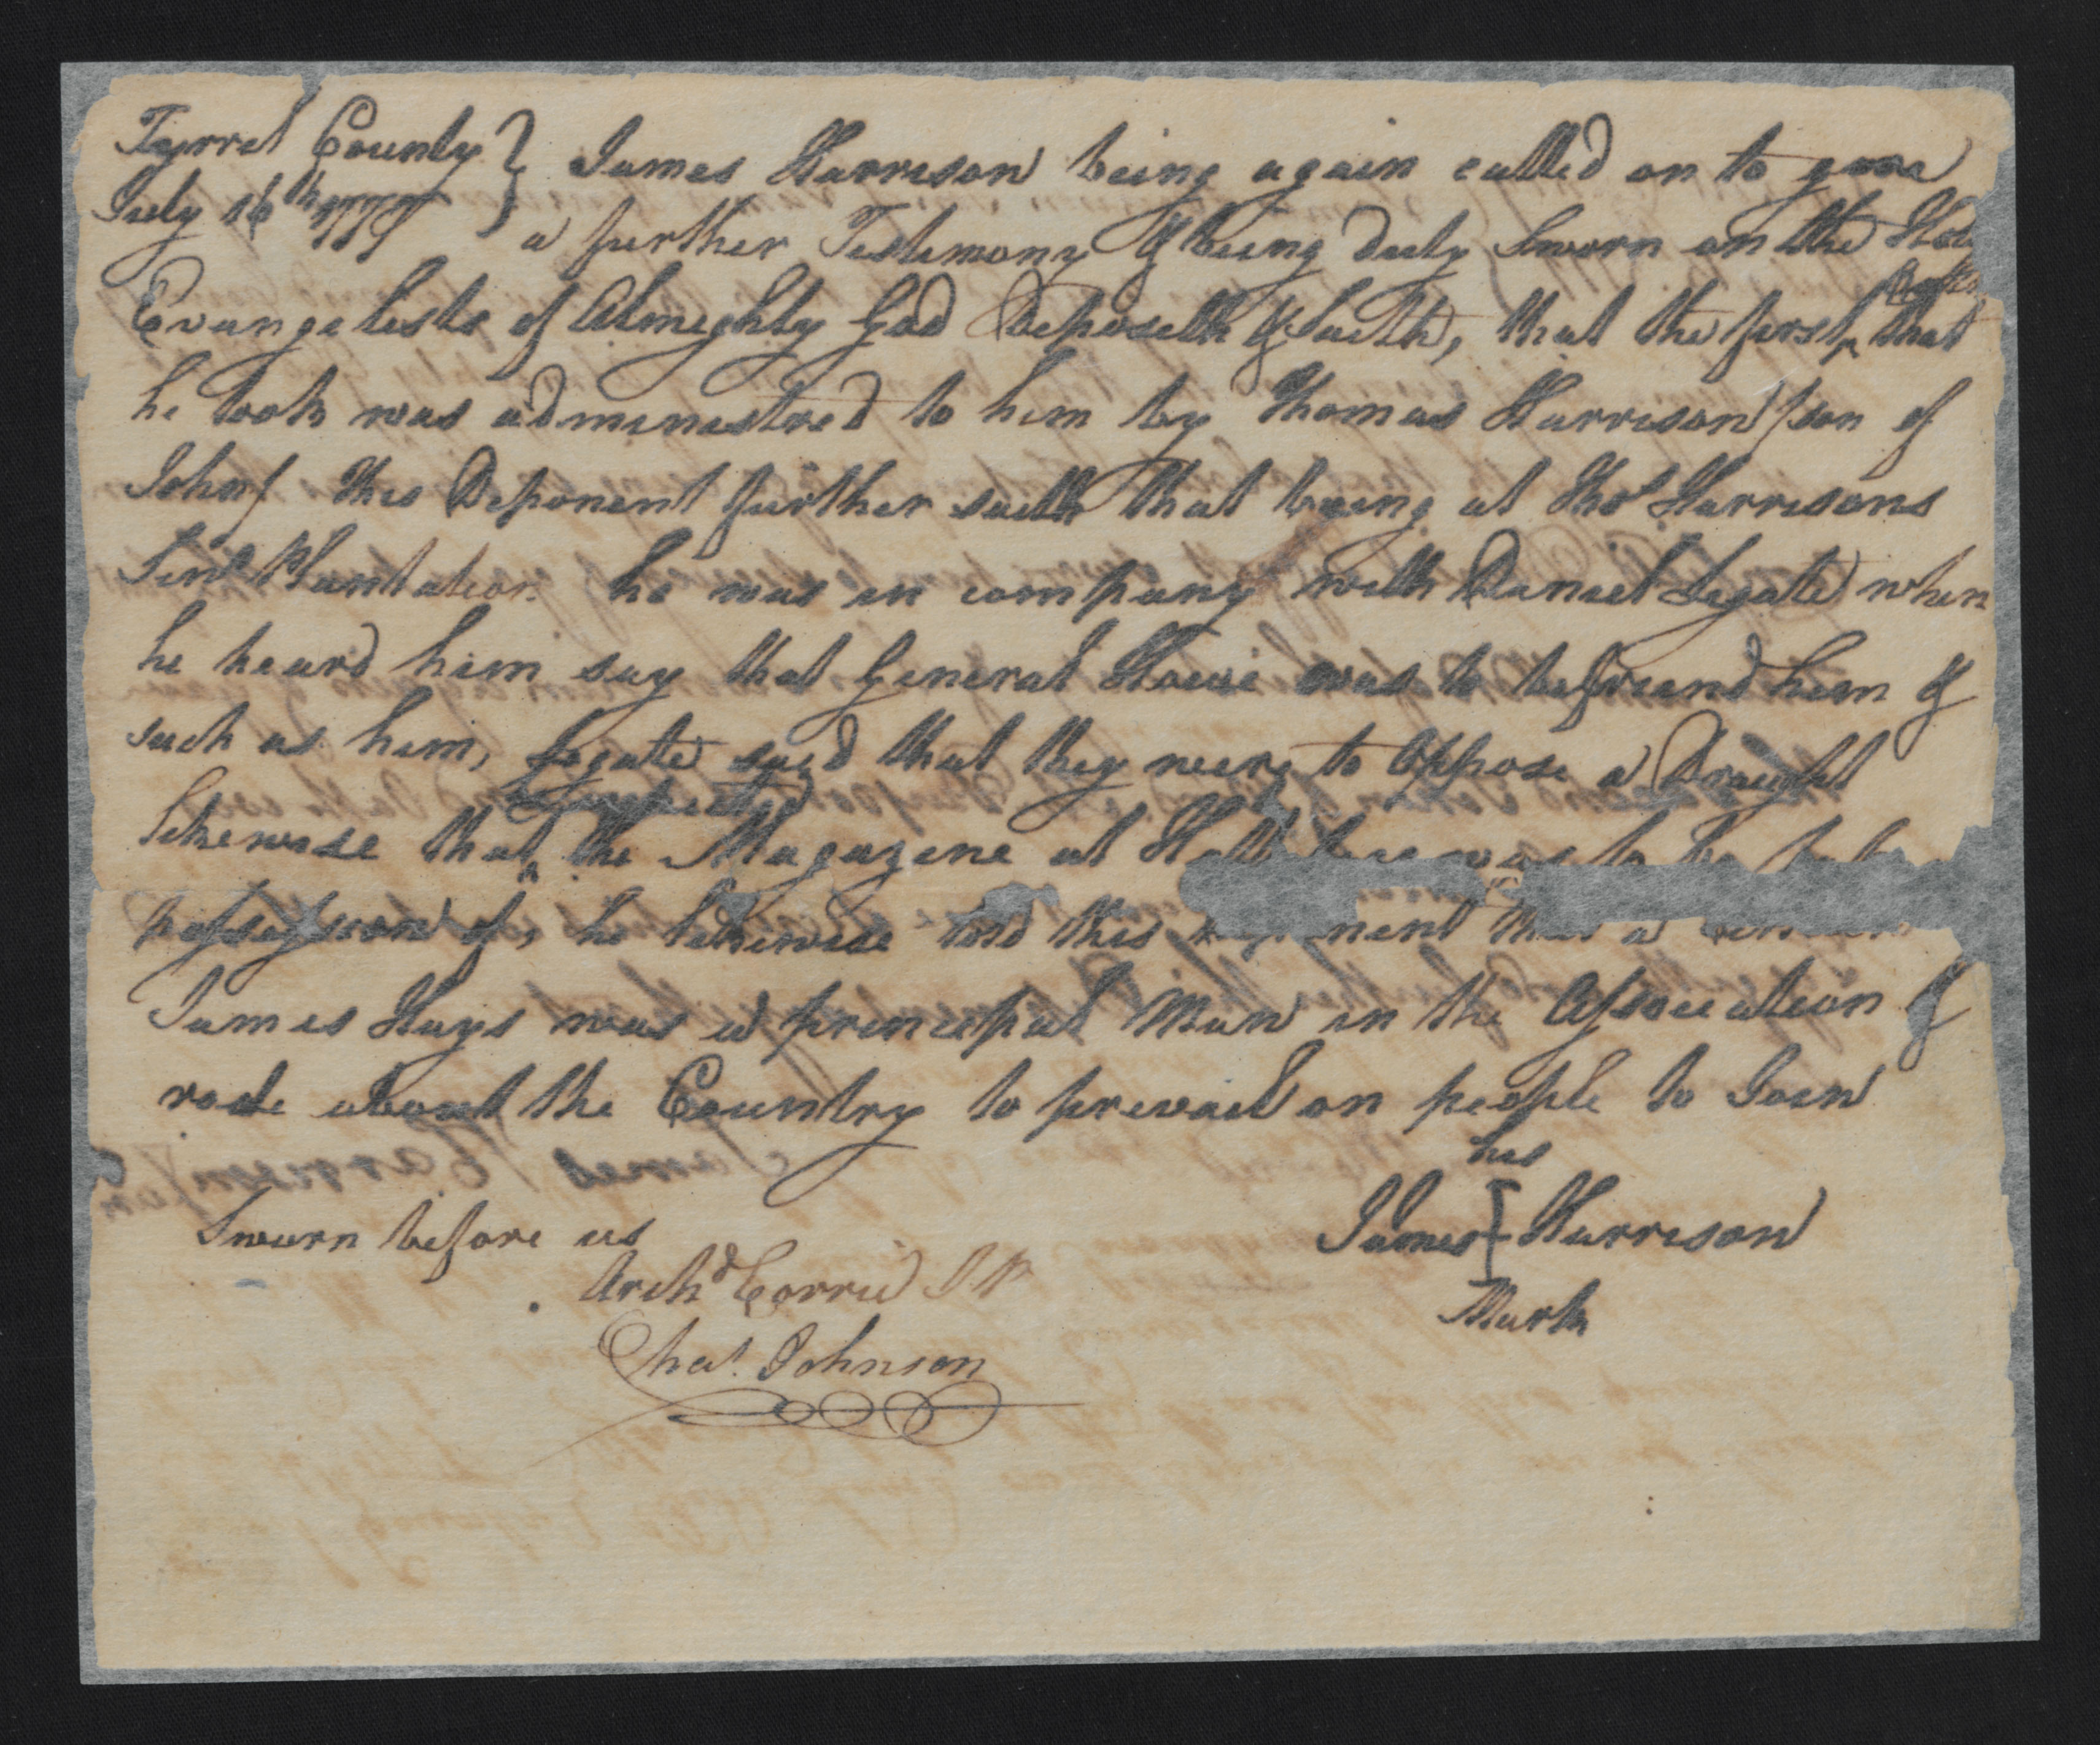 Tyrrel County } James Harrison being again called on to give
July 16th 1777 } a further Testimony & being duly Sworn on the Holy
Oath
Evangelists of Almighty God Deposeth & Saith, that the first ^ that
he took was administred to him by Thomas Harrison /son of
John/ this Deponent further saith that being at Thos Harrisons
Senr Plantation he was in company with Daniel Legate when
he heard him say that General Howe was to befreand him &
such as him, Legate said that they were to Oppose a Draught
he expected
likewise that ^ the Magazine at Hallifax was to be taken
possession of, he likewise told this Deponent that a certain
James Hays was a principal Man in the Association &
rode about the Country to prevail on people to Join
his
Sworn before us James Harrison
Archd Corrie J P
Mark
Chas. Johnson